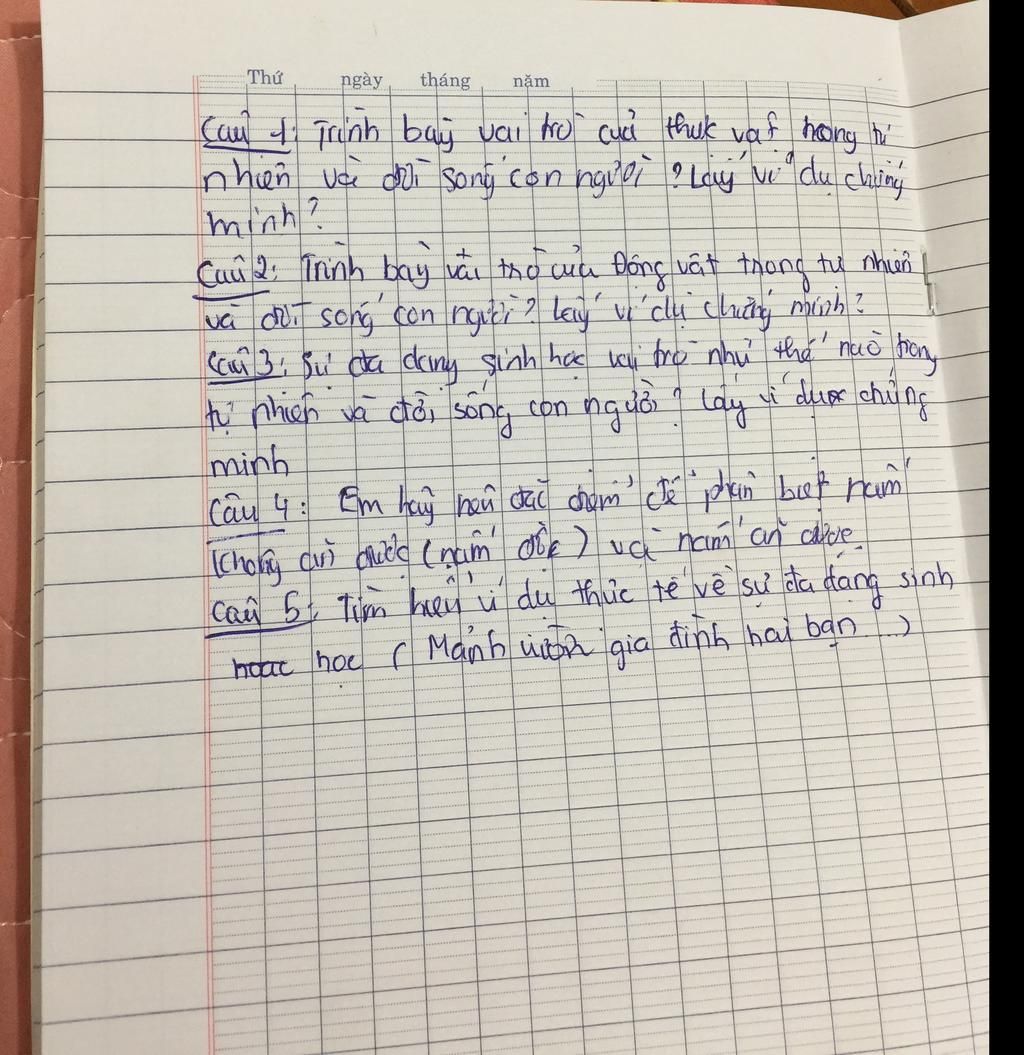 Thứ ngày tháng năm
Câu 1: Trình bày vai trò của thưk vật trong tự
nhiên và đời sống con người? Lấy ví dụ chứng
minh?
Câu 2: Trình bày vai trò của Động vật trong tự nhiên
và đời sống con người? Lấy ví dụ chứng minh?
Câu 3: Sự đa dạng sinh học vai trò như thế nào trong
tự nhiên và đời sống con người? Lấy ví dược chứng
minh
Câu 4: Em hãy nêu đặc điểm để phân biệt nấm
không ăn được (nấm độc) và nấm ăn được
Câu 5: Tìm hiểu ví dụ thức tế về sự đa dạng sinh
hoac học ( Mảnh vườn gia đình hai bạn ...)